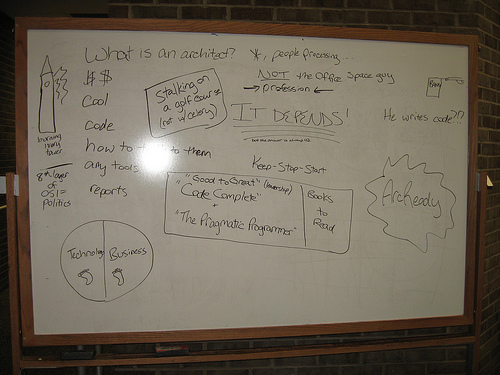 What is an architect?
*, people processing...
$ $
Cool
Code
how to to them
any tools
reports
Stalking on
a golf course
(not w/celery)
NOT the Office Space guy
→ profession ←
IT DEPENDS!
He writes code?!?
burning
ivory
tower
8th layer
of
OSI =
politics
Keep-Stop-Start
"Good to Great" (leadership)
Code Complete"
+
"The Pragmatic Programmer"
Books
to
Read
ArcReady
Technology
Business